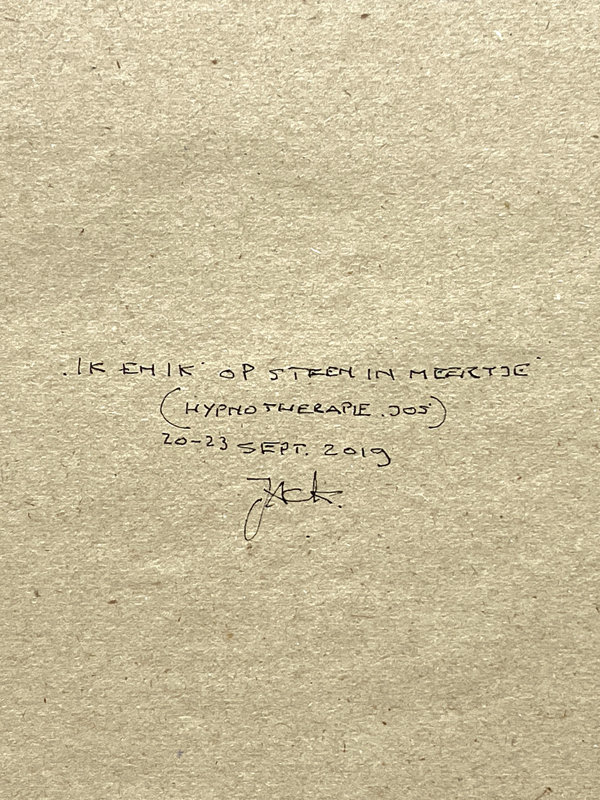 .IK EN IK' OP STEEN IN MEERTJE"
(HYPNOTHERAPIE.JOS)
20-23 SEPT. 2019
JACK.